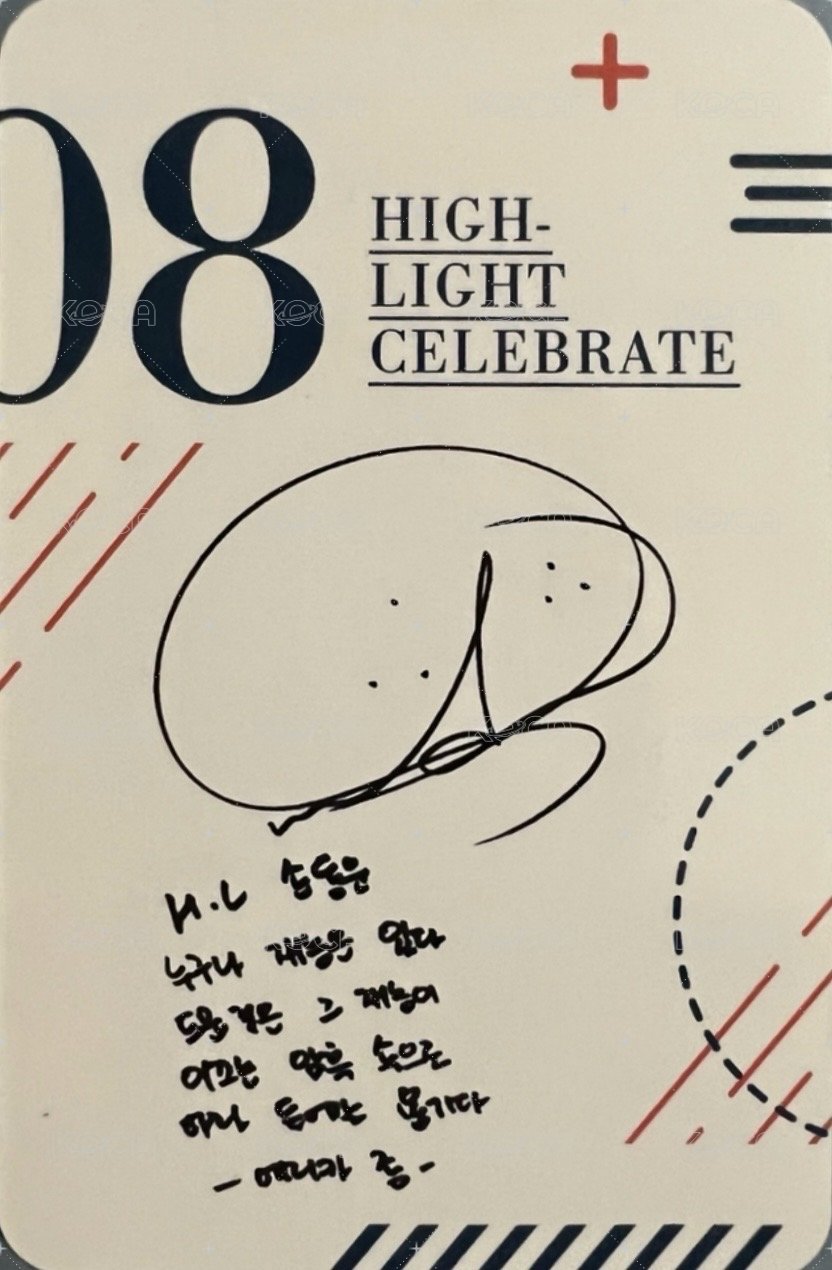 08
HIGH-
LIGHT
CELEBRATE
H.L 손동운
누구나 재능은 있다
드문 것은 그 재능이
이끄는 암흑 속으로
따라 용기다
- 에리카 종 -
KOCA